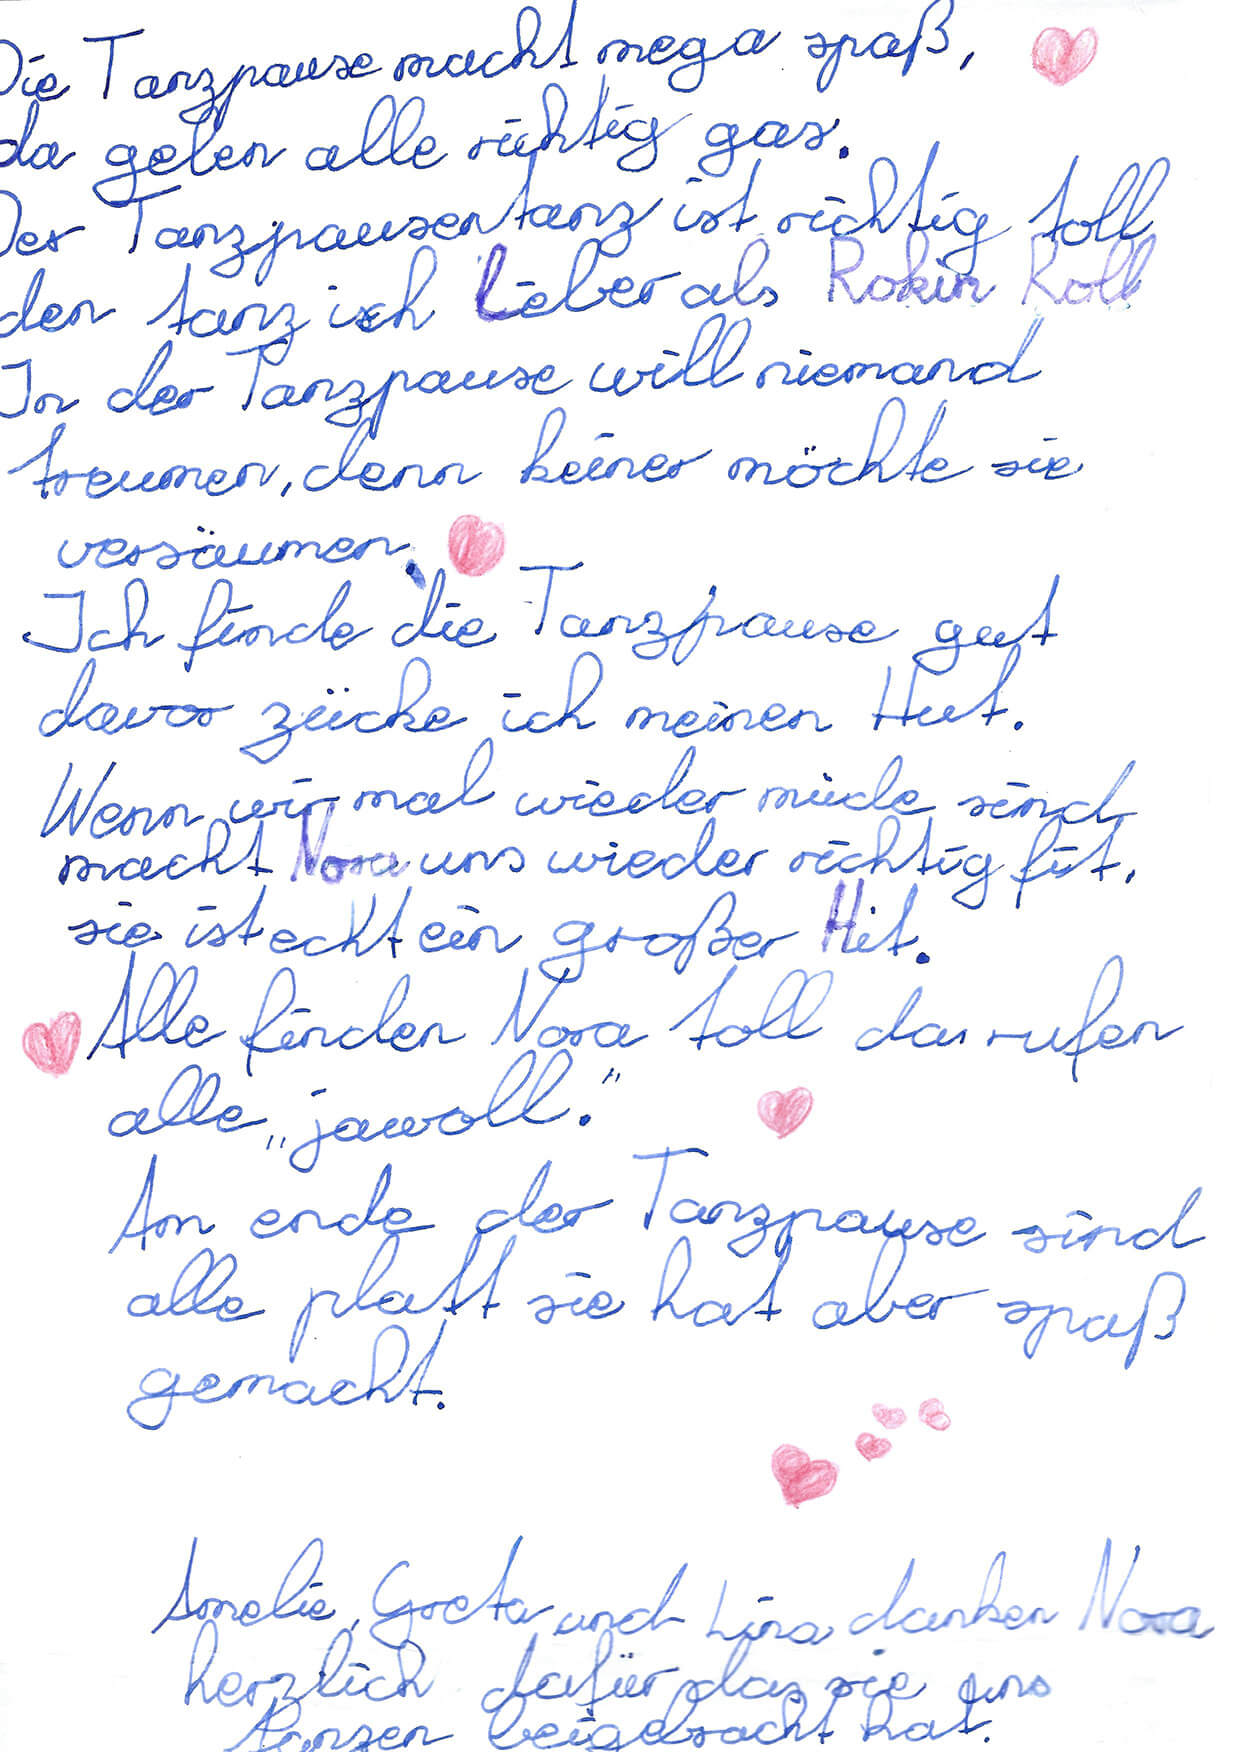 Die Tanzpause macht mega spaß,
da geben alle richtig gas.
Der Tanzpausentanz ist richtig toll
den tanz ich Lieber als Rokin Roll
In der Tanzpause will niemand
treumen, denn keiner möchte sie
versäumen.
Ich finde die Tanzpause gut
davor zücke ich meinen Hut.
Wenn wir mal wieder müde sind
macht Nora uns wieder richtig fit.
sie ist echt ein großer Hit.
Alle finden Nora toll da rufen
alle „jawoll."
Am ende der Tanzpause sind
alle platt sie hat aber spaß
gemacht.
Amelie, Greta und Lina danken Nora
herzlich dafür das sie uns
tanzen beigebracht hat.